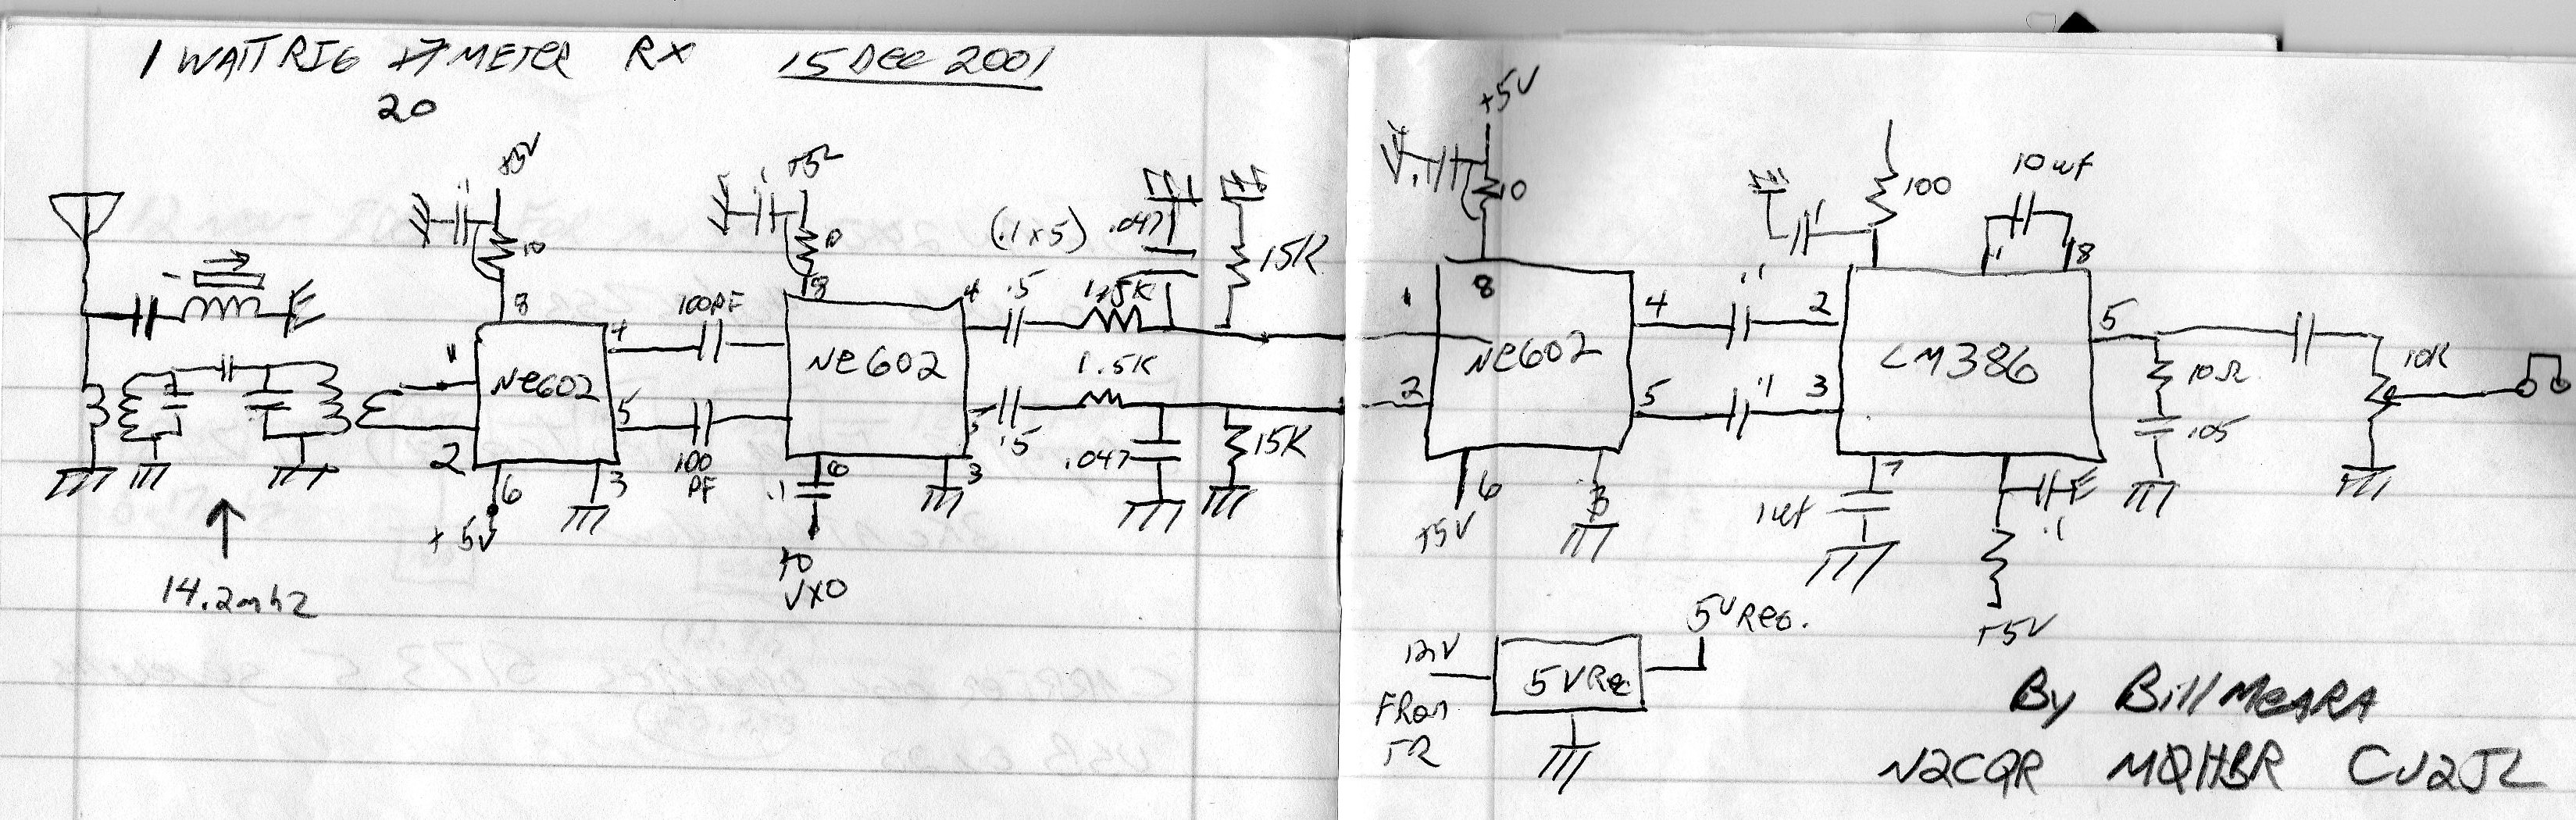 1 WATT RIG 17 METER RX 15 Dec 2001
20
+5V
.1
10
8
1
4
Ne602
2
5
6
3
+5V
14.2mhz
100PF
100
PF
+5V
.1
10
8
4
Ne602
5
6
3
.1
to
VXO
(.1x5)
.5
1.5K
.047
15K
.5
1.5K
.047
15K
+5V
.1
10
1
8
4
Ne602
2
5
6
3
+5V
.1
.1
100
10uf
.1
1
8
2
LM386
5
3
7
1uf
.1
+5V
10Ω
.05
10K
12V
FROM
5VReg
5V Reg.
By Bill MeARA
N2CQR M0HBR CU2JL